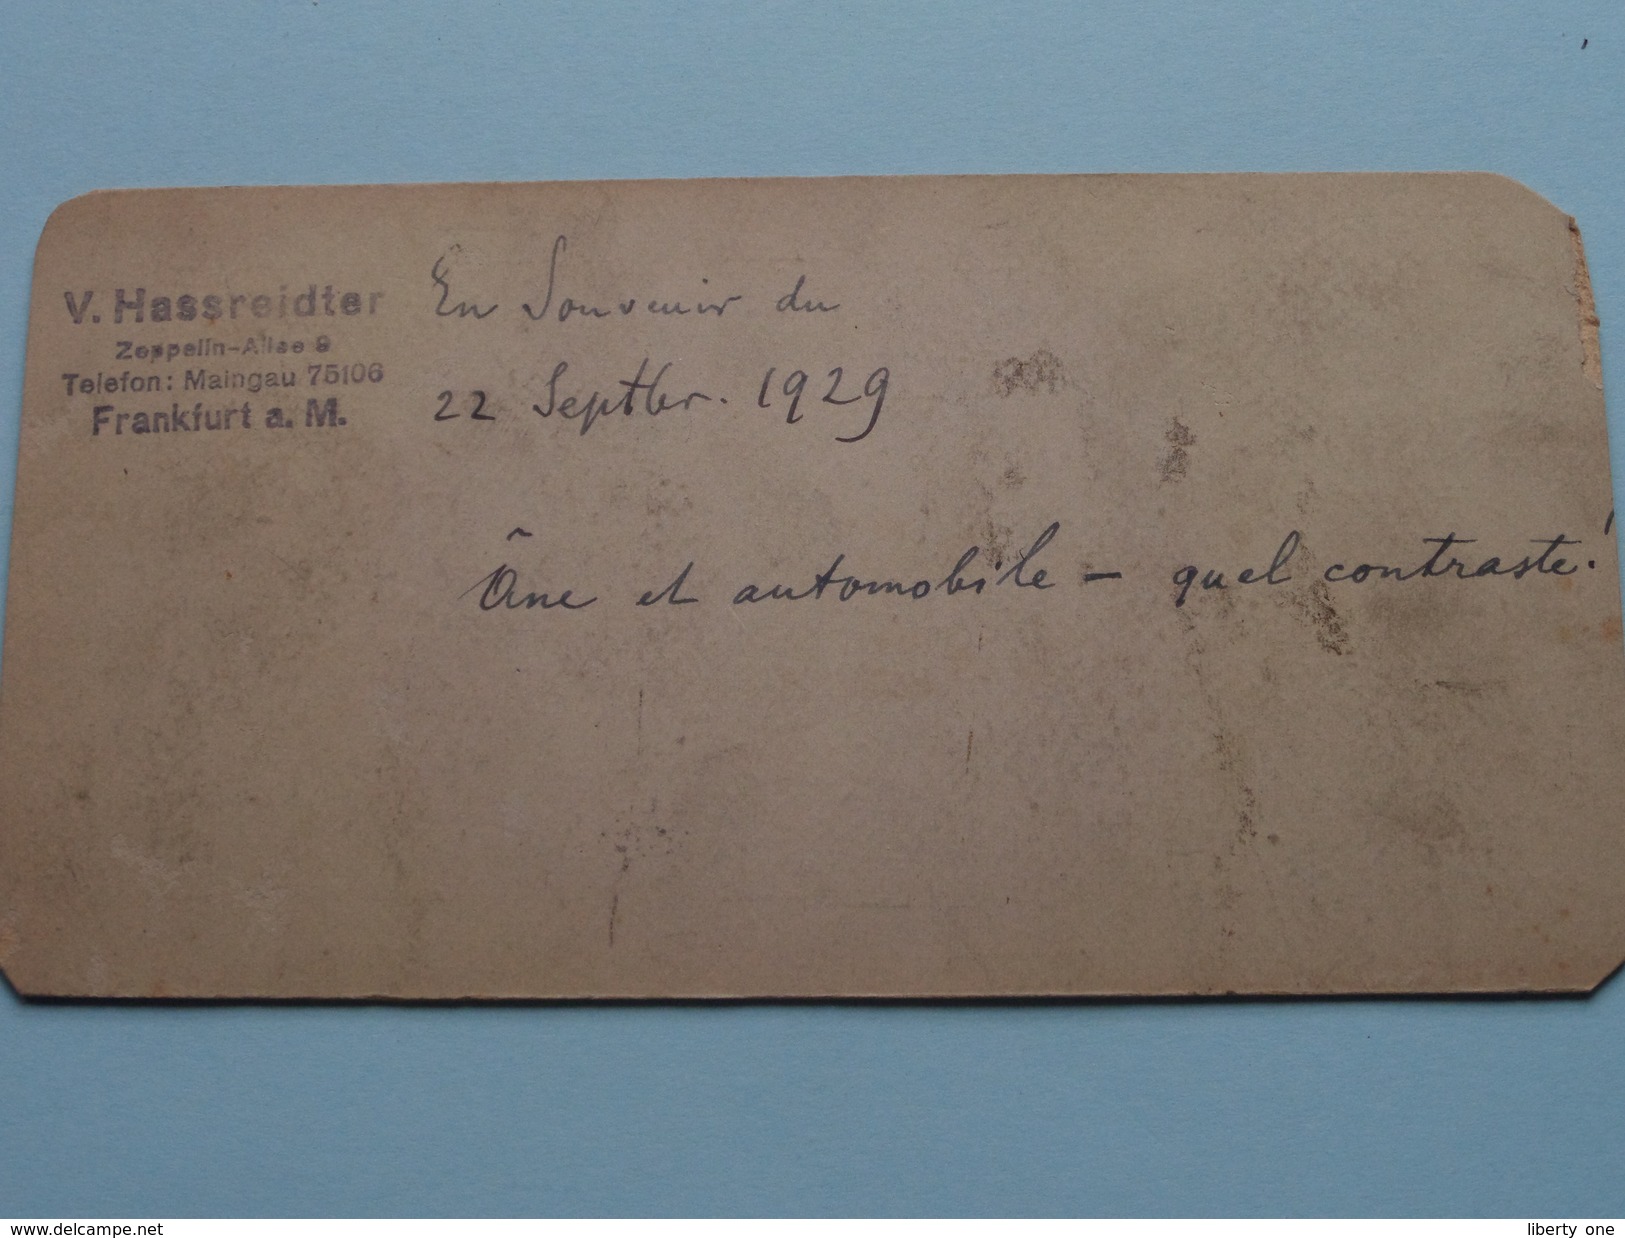 V. Hassreidter
Zeppelin-Allee 9
Telefon: Maingau 75106
Frankfurt a. M.
En Souvenir du
22 Septbr. 1929
Âne et automobile – quel contraste!
www.delcampe.net
liberty_one